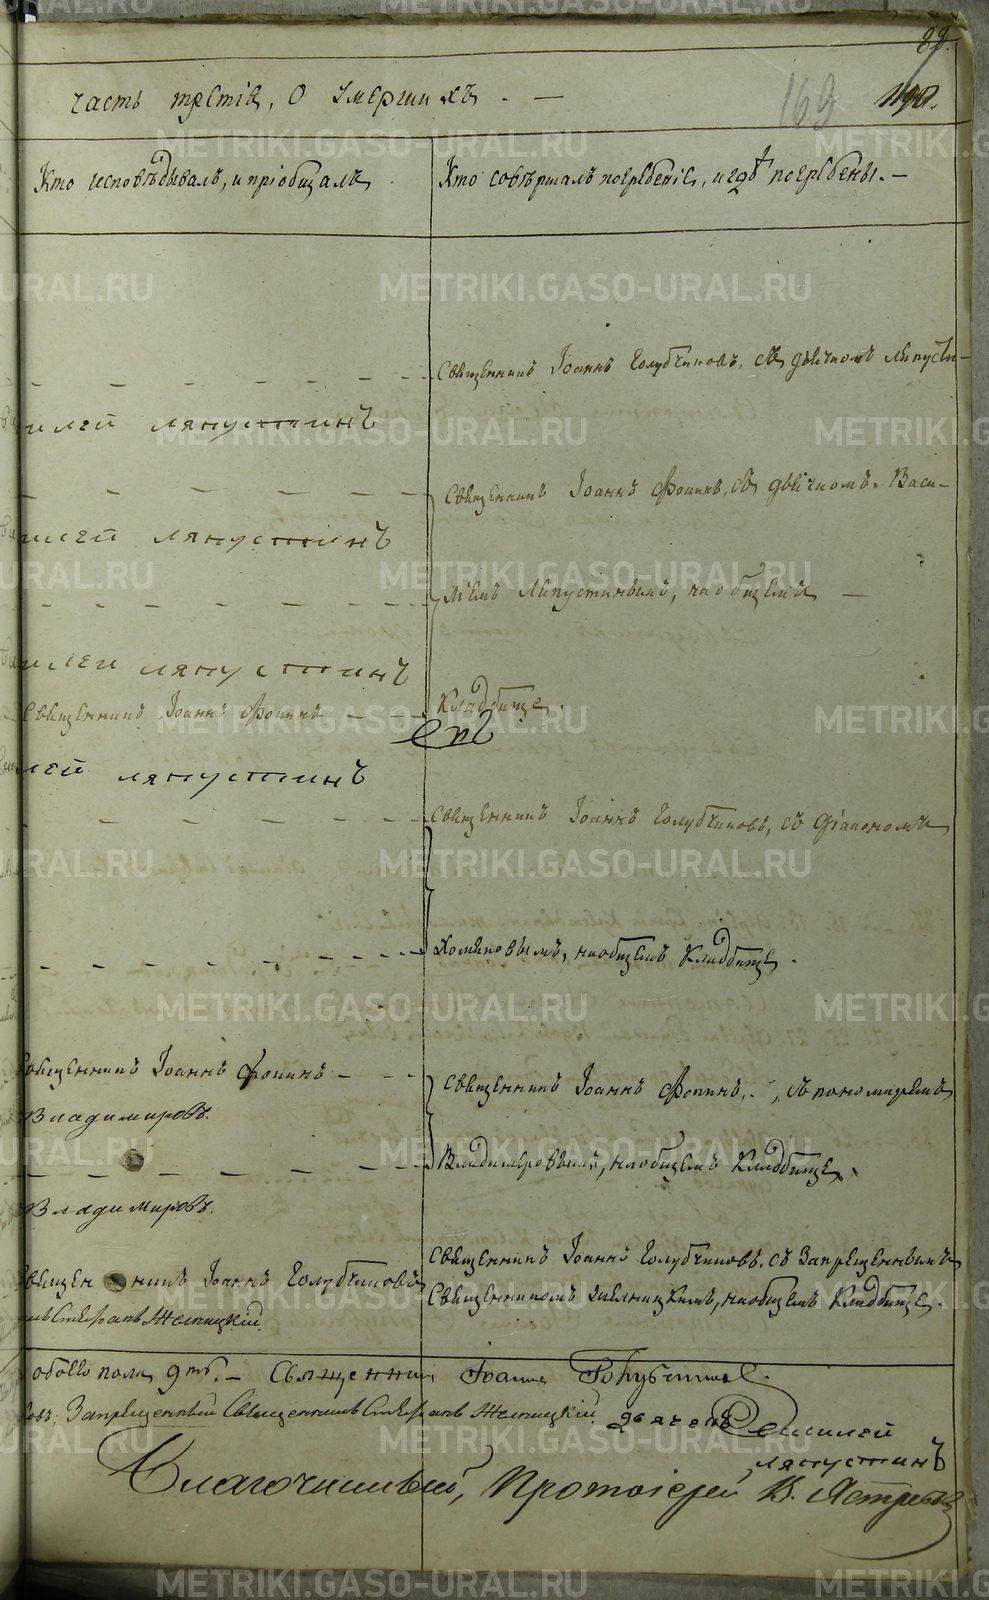 89.
169
часть третія, о умершихъ. —
Кто исповѣдывалъ, и пріобщалъ
Кто совершалъ погребеніе, и гдѣ погребены. —
Священникъ Іоаннъ Голубчиковъ, съ дьячкомъ Ляпусти-
илей ляпустинъ
Священникъ Іоаннъ Фокинъ, съ дьячкомъ Васи-
илей ляпустинъ
льемъ Ляпустинымъ, на общемъ —
илей ляпустинъ
Кладбище.
Священникъ Іоаннъ Фокинъ — —
лей ляпустинъ
Священникъ Іоаннъ Голубчиковъ, съ діакономъ
Хомяковымъ, на общемъ Кладбище.
Священникъ Іоаннъ Фокинъ —
Священникъ Іоаннъ Фокинъ, съ пономаремъ
Владимировъ.
Владимировымъ, на общемъ Кладбище.
Владимировъ.
Священникъ Іоаннъ Голубчиковъ, съ Запрещеннымъ
Священникъ Іоаннъ Голубчиковъ
Священникомъ Жельницкимъ, на общемъ Кладбище.
Стефанъ
обоего пола 9ть. — Священник Іоанн Голубчиков.
Запрещенный Священникъ Стефанъ
дьячекъ Василей
ляпустинъ
Благочинный, Протоіерей В. Ястребов
METRIKI.GASO-URAL.RU